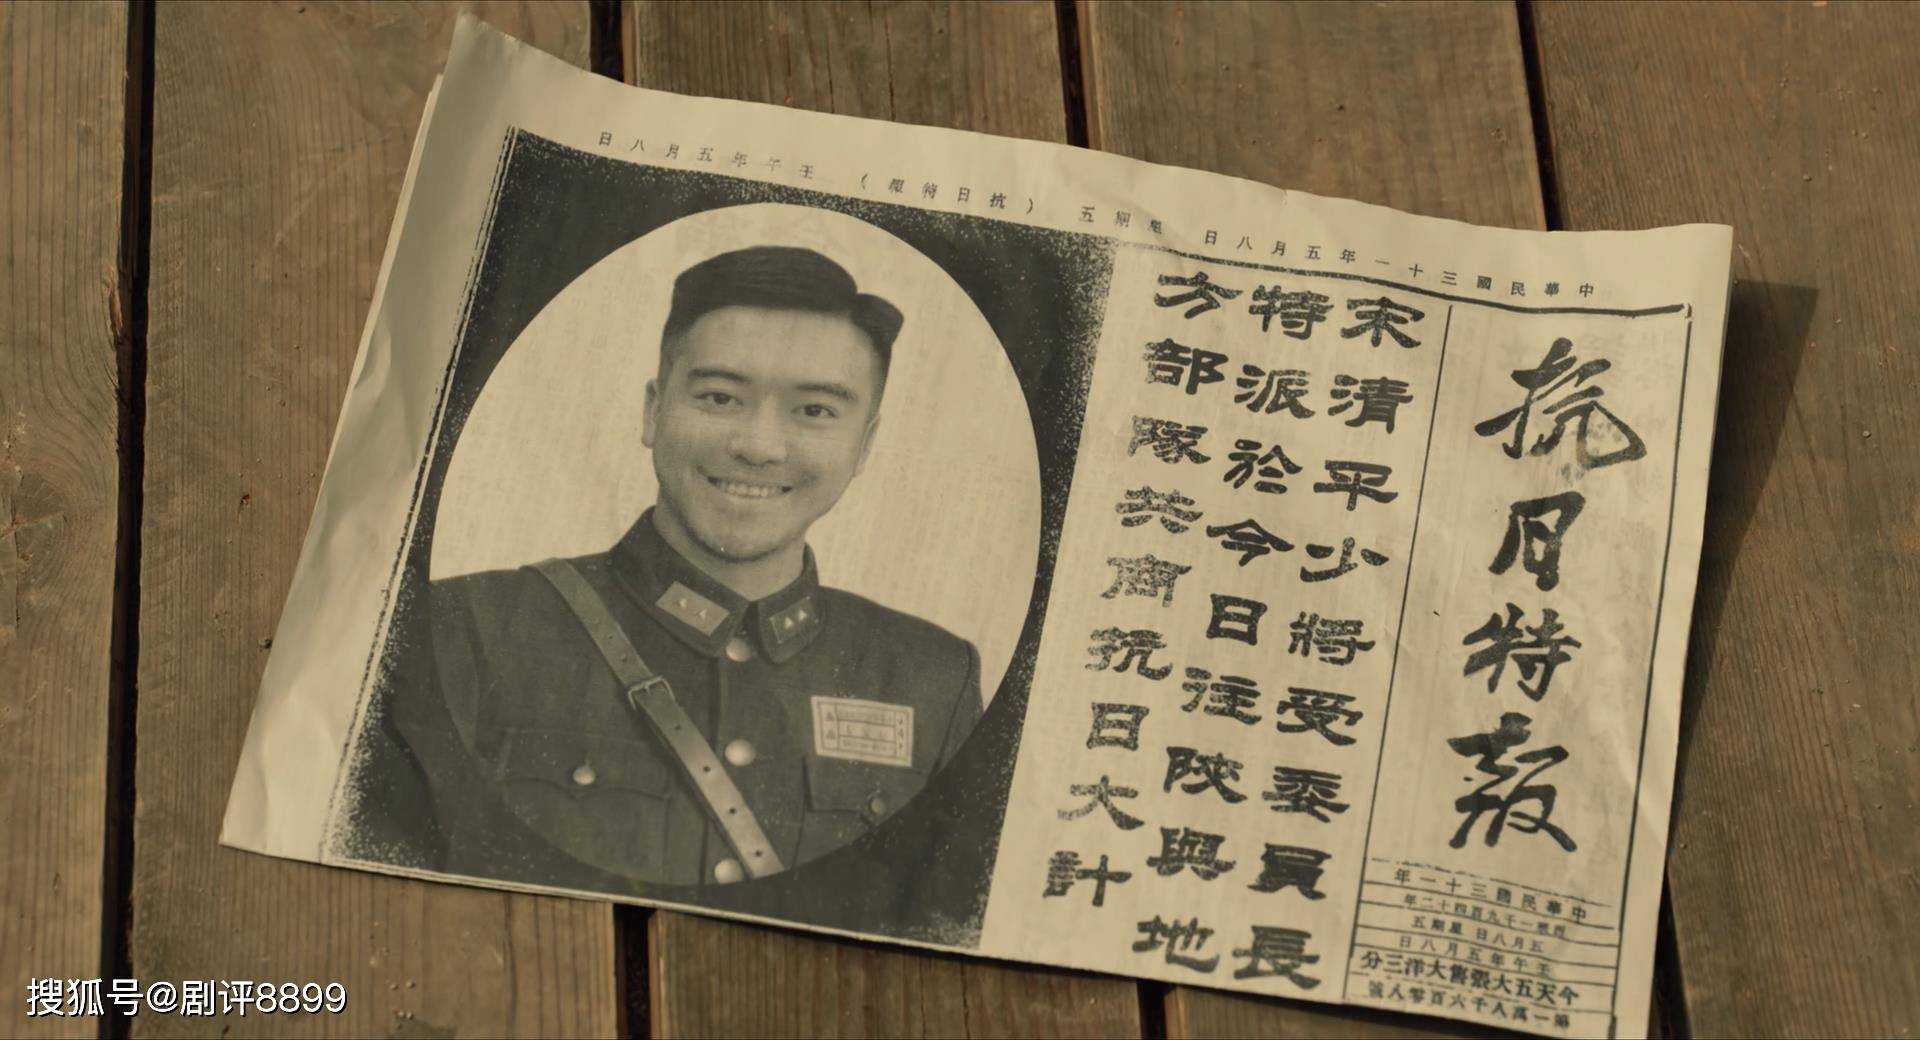 中華民國三十一年五月八日 星期五 （抗日特報） 壬午年五月八日
抗日特報
宋清平少將受委員長
特派於今日注陝與地
方部隊共商抗日大計
中華民國三十一年
西曆一千九百四十二年
五月八日 星期五
壬午年五月八日
今天五大張售大洋三分
第一萬八千六百零八號
搜狐号@剧评8899